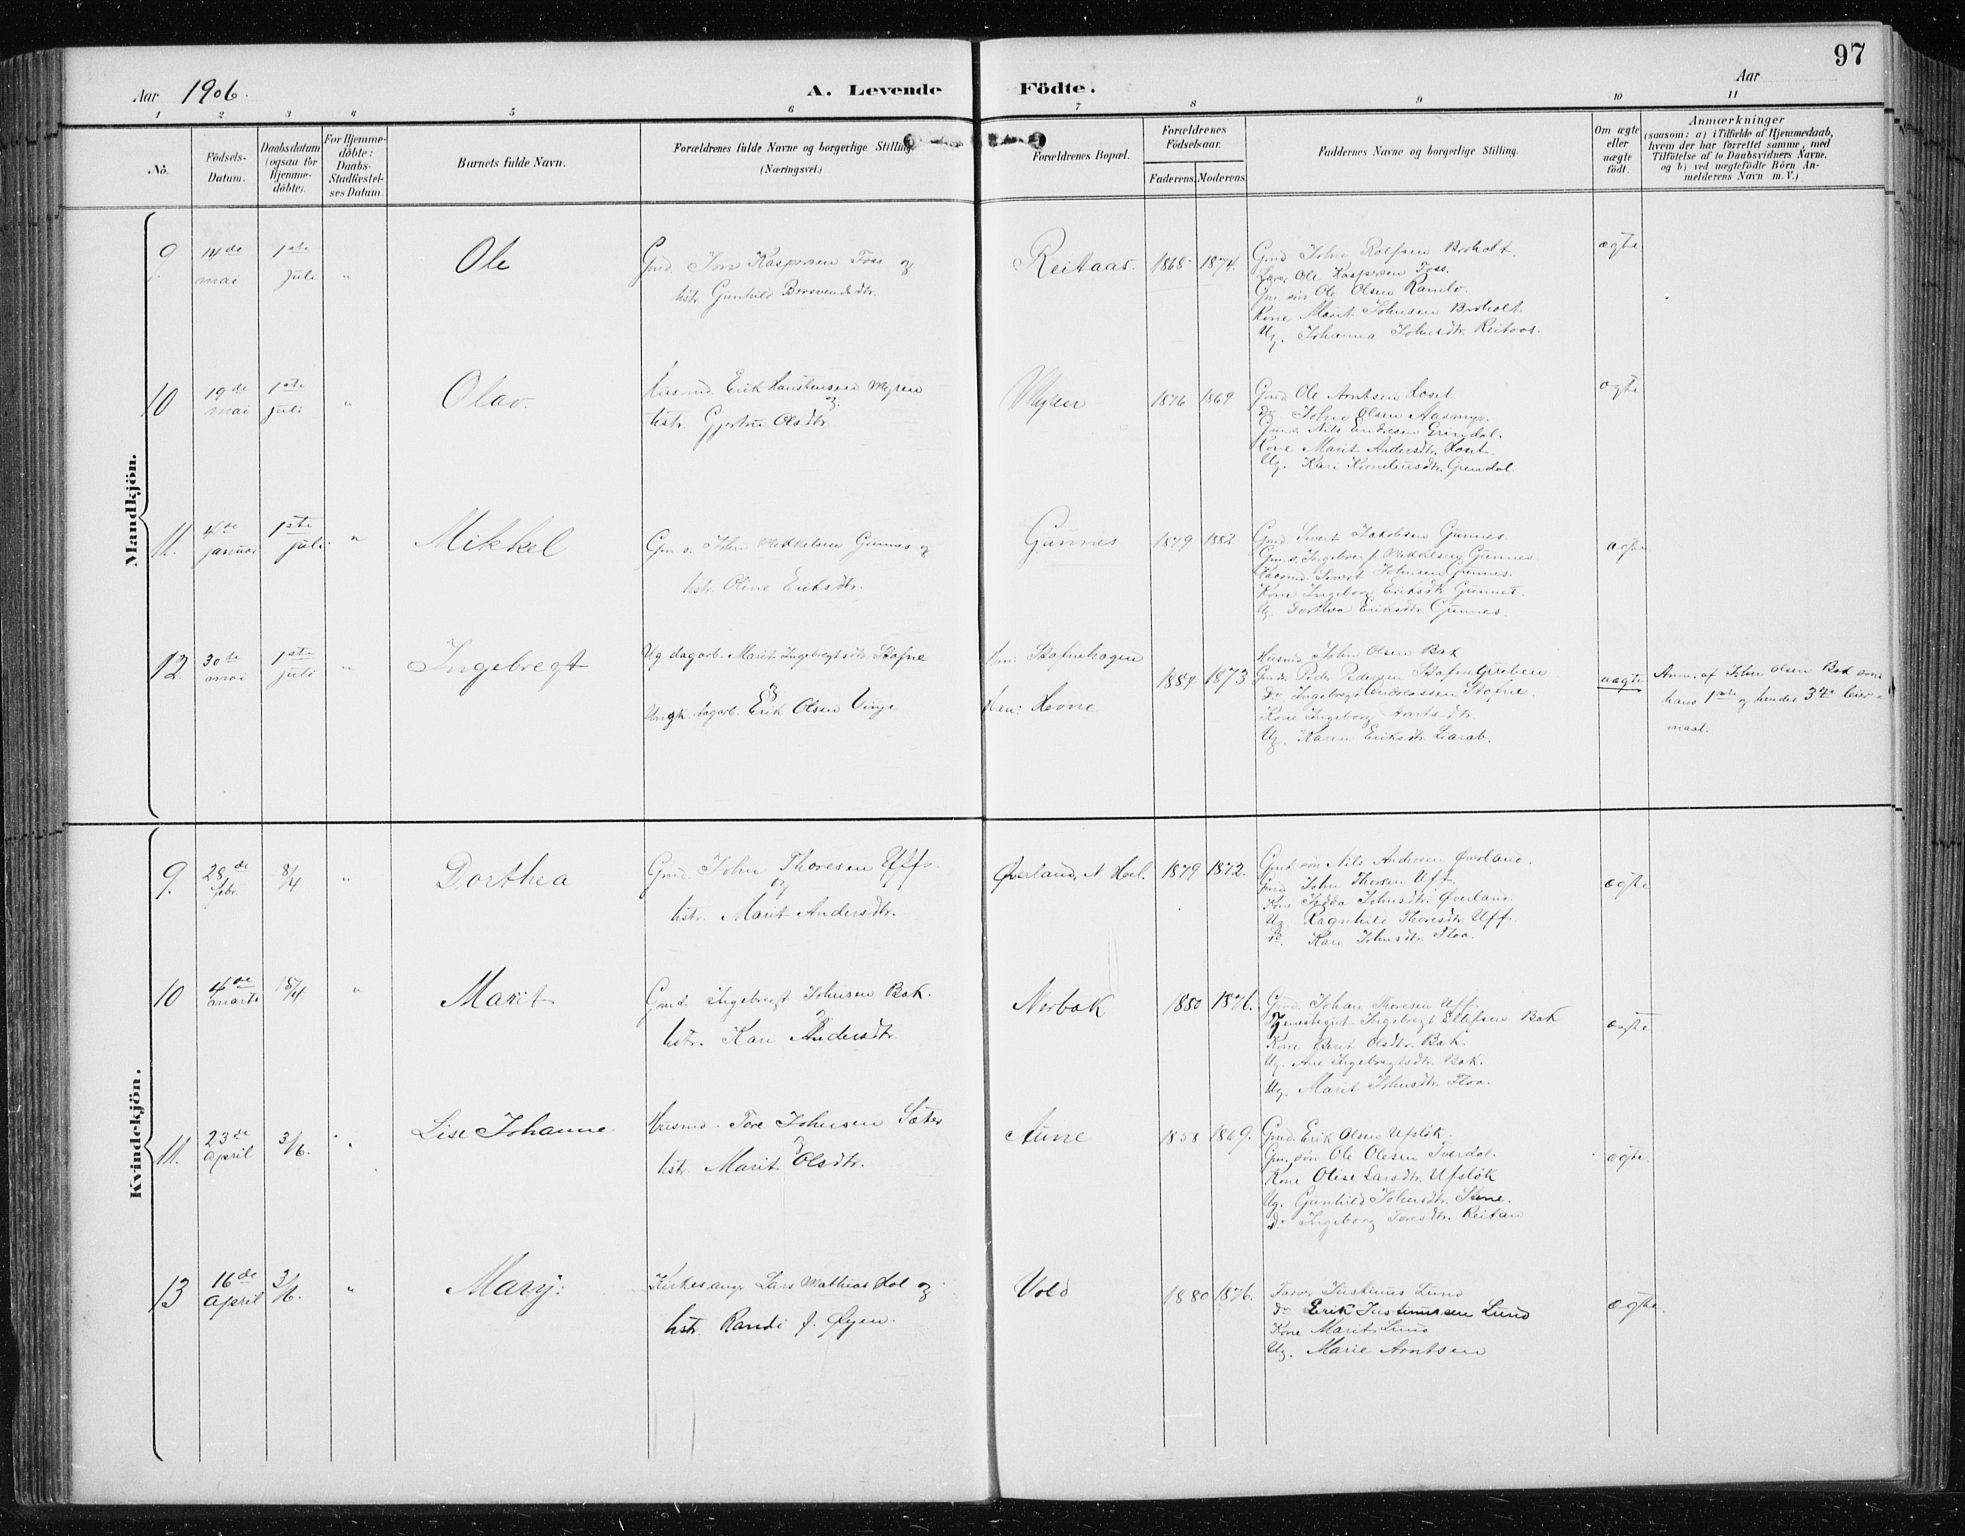 97
Aar 1906.
A. Levende Födte.
Aar
1 2 3 4 5 6 7 8 9 10 11
No.
Födsels-Datum.
Daabsdatum (ogsaa för Hjemme-döbte).
For Hjemme-döbte: Daabs-Stadfæstel-ses Datum.
Barnets fulde Navn.
Forældrenes fulde Navne og borgerlige Stilling
(Næringsvei.)
Forældrenes Bopæl.
Forældrenes Födselsaar.
Faderens. Moderens.
Faddernes Navne og borgerlige Stilling.
Om ægte eller uægte födt.
Anmærkninger
(saasom: a) i Tilfælde af Hjemmedaab,
hvem der har forrettet samme, med
Tilföielse af to Daabsvidners Navne,
og b) ved uægtefödte Börn An-
melderens Navn m. V.)
Mandkjön.
9 14de mai 1ste juli " Ole
Gmd. Jon Kaspersen Foss og
hstr. Gunhild Brosvendsdtr.
Reitaas. 1865 1874.
Gmd John Rolfsen Broholt.
Lærer Ole Kaspersen Foss.
Gm. søn Ole Olsen
Kone Marit Johnsen Broholt.
Ug. Johanna Johnsdtr. Reitaas.
ægte
10 19de mai 1ste juli " Olav.
Husmd Erik Myren og
hstr. Gjertru Olsdtr.
Myren 1876 1869
Gmd Ole Arntsen Loset
do John Olsen Aasmyr.
Gm.s. Nils Endresen Grindal.
Kone Marit Andersdtr. Loset.
Ug. Kari Korneliusdtr. Grendal
ægte
11. 4de januar 1ste juli. " Mikkel
Gm.s. John Mikkelsen Gunnes og
hstr. Oline Eriksdtr.
Gunnes 1879 1882
Gmd Sivert Jakobsen Gunnes.
Gm.s. Ingebregt Mikkelsen Gunnes
Sivert Johnsen Gunnes.
Kone Ingeborg Eriksdtr Gunnes.
Ug. Dorthea Eriksdtr. Gunnes.
ægte
12. 30te mai 1ste juli " Ingebregt
Ug dagarb. Marit Ingebregtsdtr. Stofne
og
Ungk. dagarb. Erik Olsen Vinje
Hun: Stofnehagen
Han: Hevne
1884 1873
Husmd John Olsen Bak
Gmds. Peder Pedersen
do Ingebregt Andreassen Stofne.
Kone Ingeborg Arntsdtr.
Ug. Karen Eriksdtr.
uægte
Anm. af John Olsen Bak som
hans 1ste og hendes 3die leier-
maal.
Kvindekjön.
9. 28de febr. 8/4 " Dorthea
Gmd. John Thoresen Uff
og
hstr. Marit Andersdtr.
Øverland, N Hol. 1879 1872.
Gmd søn Nils Andersen Øverland.
Gmd John Thorsen Uff.
Kone Johnsdtr. Øverland.
Ug. Ragnhild Thoresdtr. Uff.
do. Kari Johnsdtr. Floa.
ægte
10 4de marts 15/4 " Marit
Gmd. Ingebregt Johnsen Bak.
og
hstr. Kari Andersdtr.
Nerbak 1880 1876.
Gmd. Johan Thoresen Uff
Tjenestegut Ingebregt Ellefsen Bak
Kone Berit Olsdtr. Bak.
Ug. Ane Ingebregtsdtr. Bak.
Ug. Marit Johnsdtr. Floa.
ægte
11. 23de april 3/6. " Lise Johanne
Husmd. Tore Johnsen Sæter
og
hstr. Marit Olsdtr.
Aune 1858 1869.
Gmd. Erik Olsen Ufsløk.
Gm. søn Ole Olesen
Kone Olise Larsdtr. Ufsløk
Ug. Gunhild Johnsdtr.
do Ingeborg Toresdtr. Reitan
ægte.
13 16de april 3/6. " Mary.
Kirkesanger Lars Mathias Hol og
hstr. Randi f. Øyen.
Vold 1880 1876.
Farver Justinus Lund
do Erik Justinussen Lund
Kone Marit Lund
Ug. Marie Arntsen
ægte.